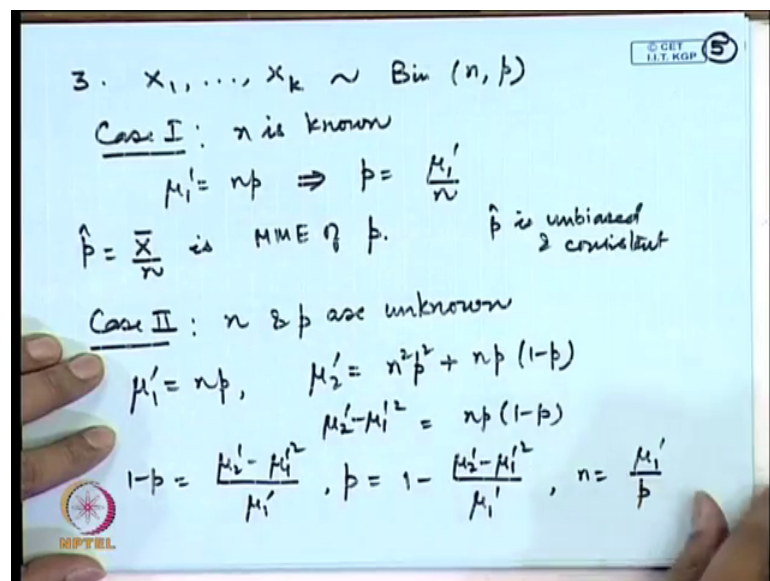 © CET
I.I.T. KGP
5
3. X₁, ..., Xₖ ~ Bin (n, p)
Case I : n is known
μ₁' = np ⇒ p = μ₁'/n
p̂ = X̄/n is MME of p. p̂ is unbiased & consistent
Case II : n & p are unknown
μ₁' = np, μ₂' = n²p² + np (1-p)
μ₂' - μ₁'² = np (1-p)
1-p = (μ₂' - μ₁'²)/μ₁' , p = 1 - (μ₂' - μ₁'²)/μ₁' , n = μ₁'/p
NPTEL